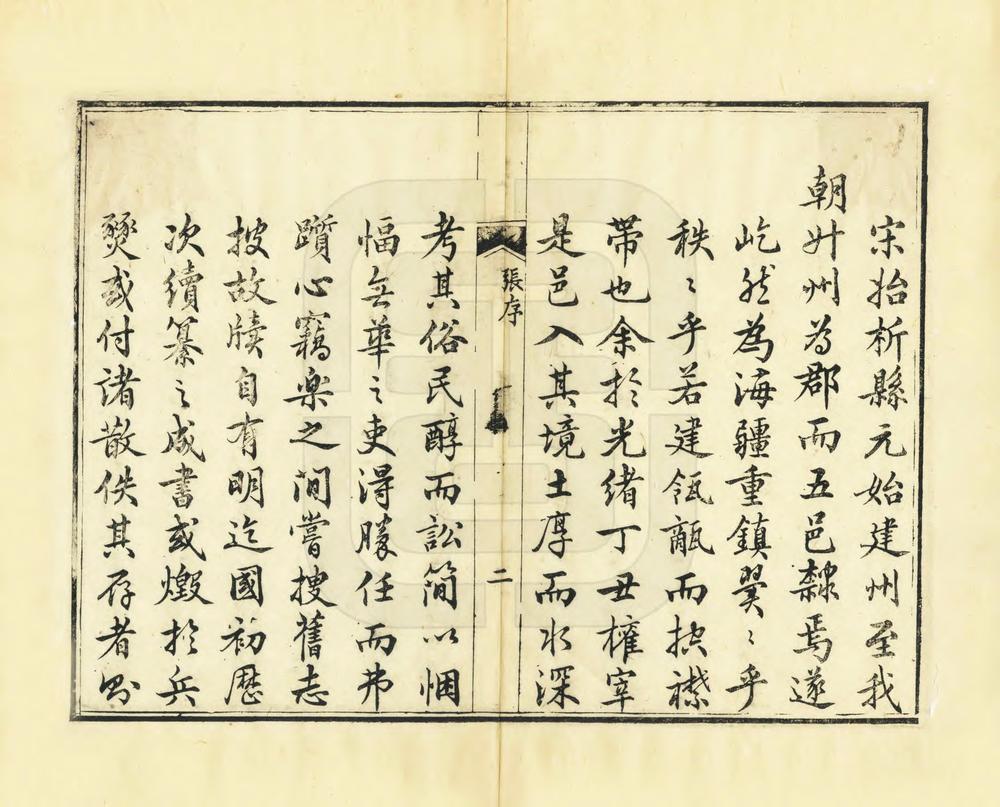 宋抬析縣元始建州至我
朝升州為郡而五邑隸焉遂
屹然為海疆重鎮翼〻乎
秩〻乎若建瓴甋而挾襟
帶也余於光緒丁丑權宰
是邑入其境土厚而水深
張序
二
考其俗民醇而訟簡以悃
愊無華之吏得勝任而弗
躓心竊樂之間嘗搜舊志
披故牘自有明迄國初歷
次續纂之成書或燬於兵
燹或付諸散佚其存者則